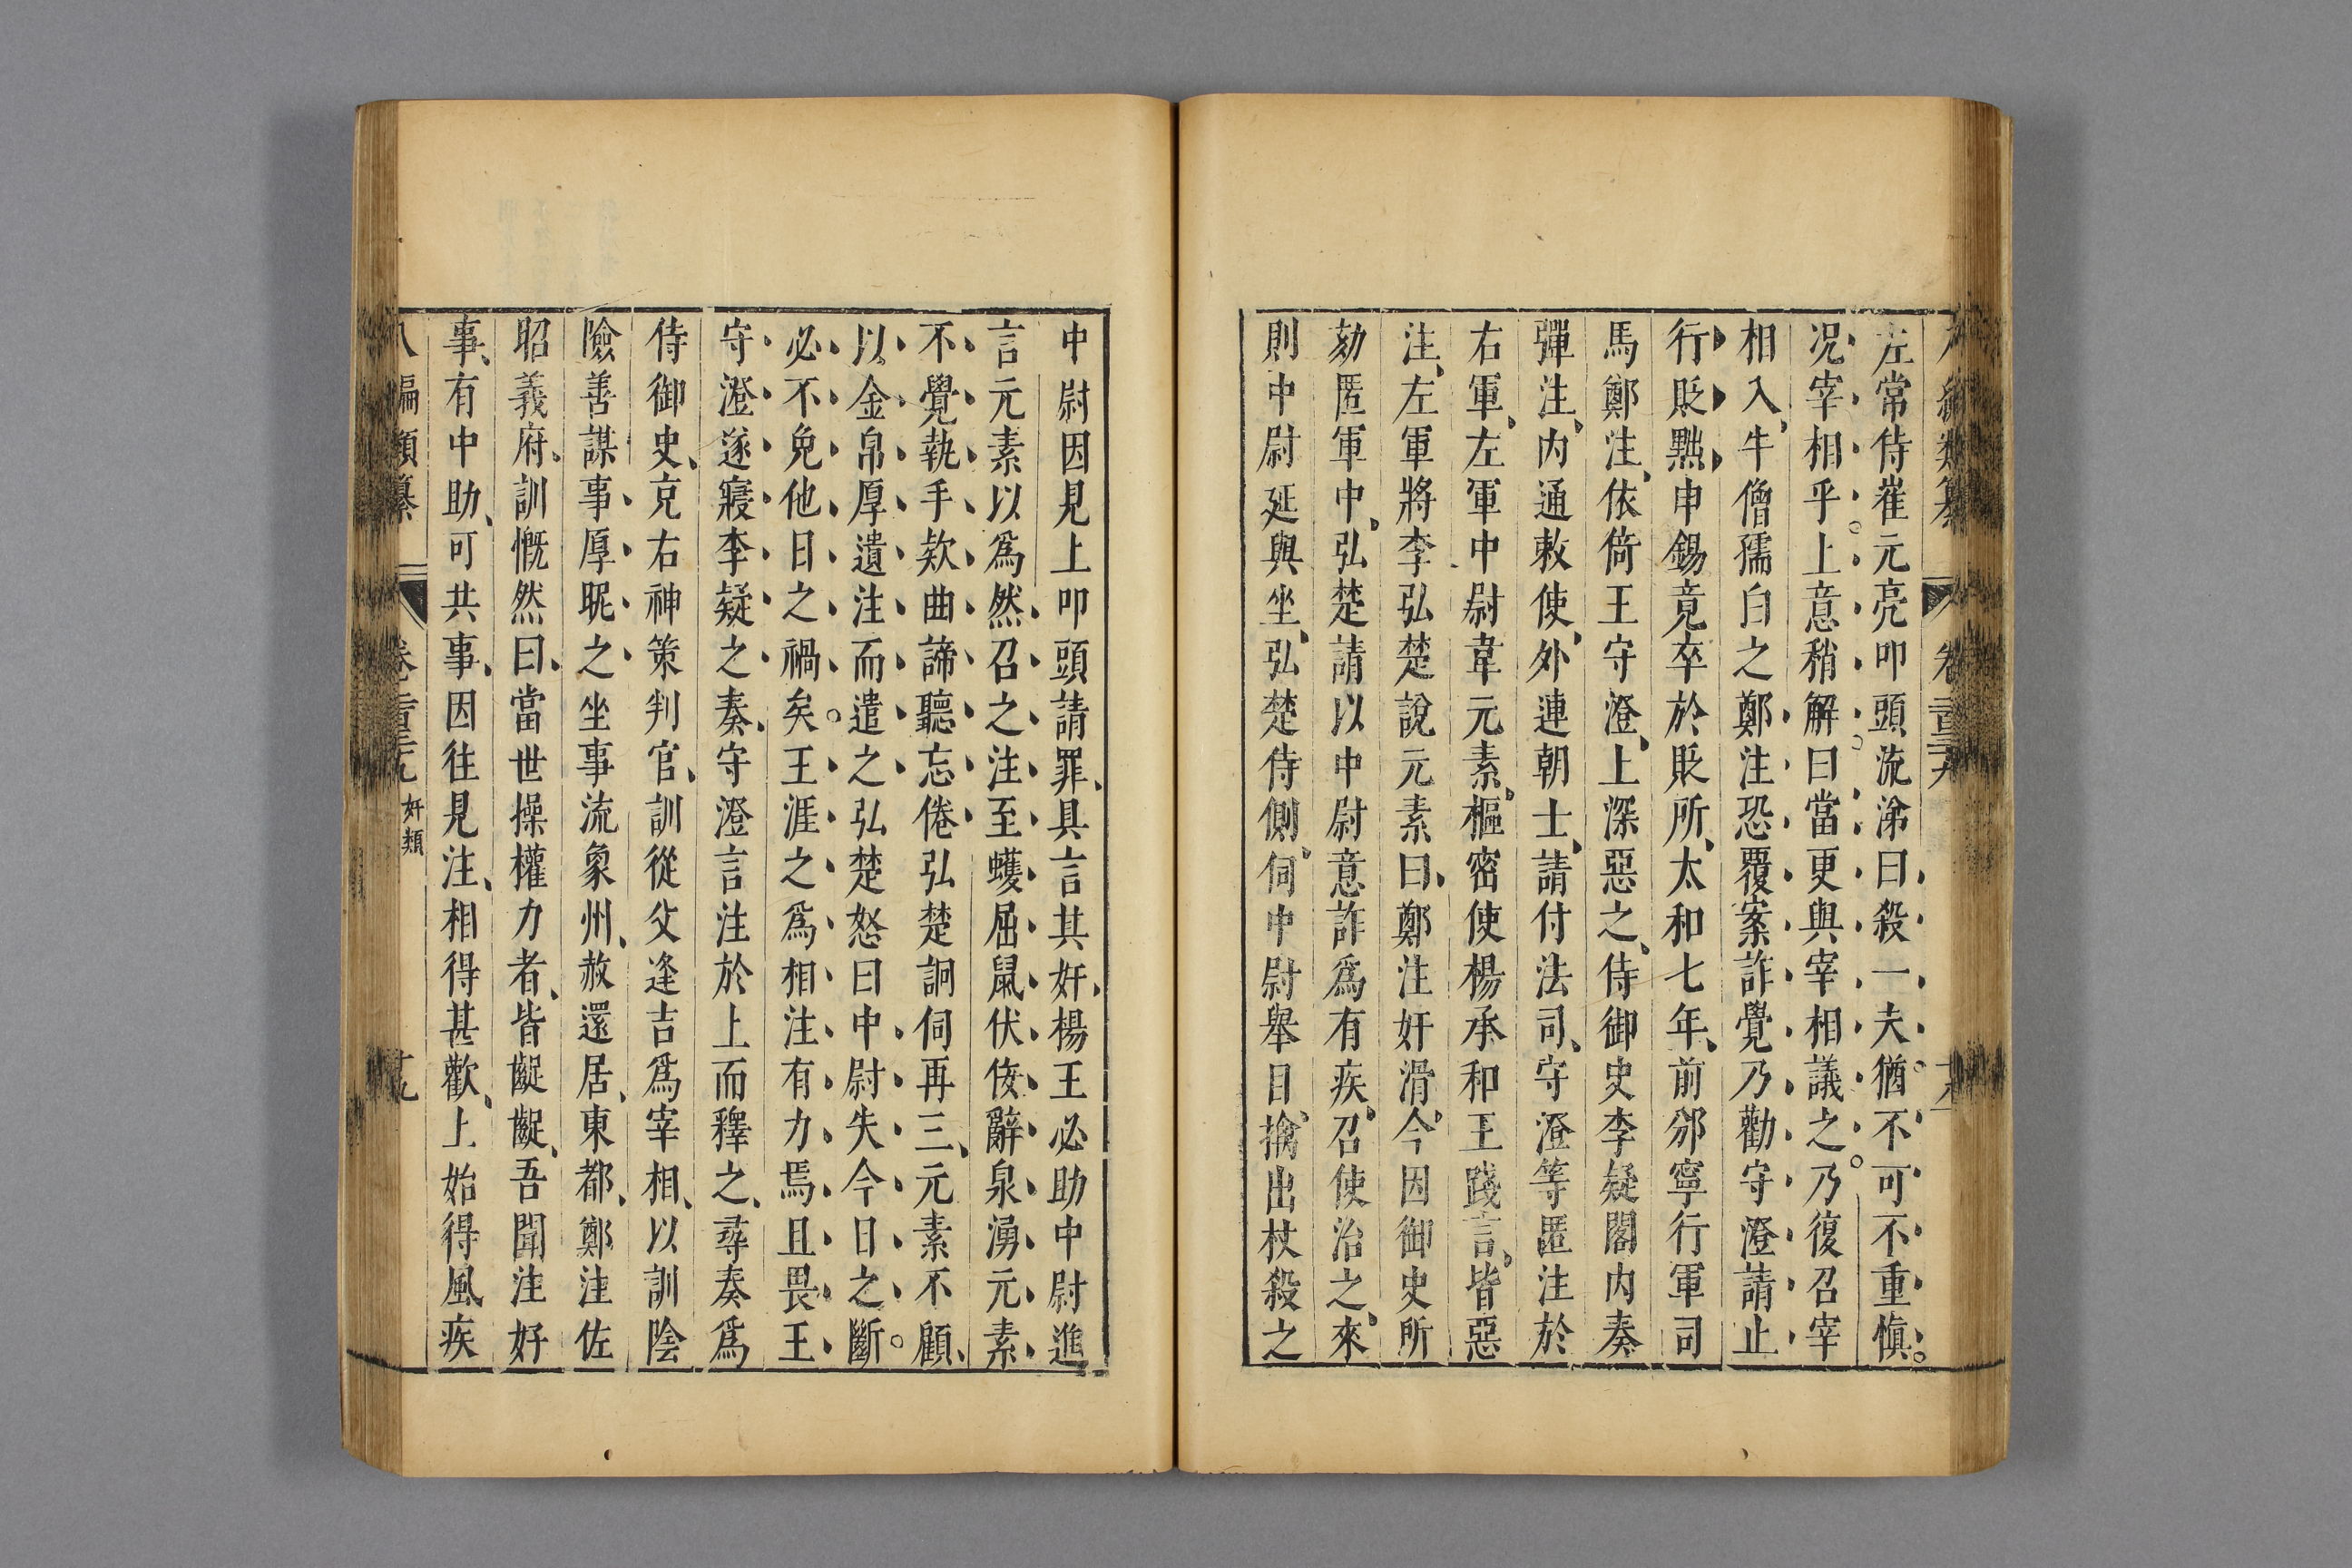 左常侍崔元亮叩頭流涕曰殺一夫猶不可不重慎
况宰相乎上意稍解曰當更與宰相議之乃復召宰
相入牛僧孺白之鄭注恐覆案詐覺乃勸守澄請止
行貶黜申錫竟卒於貶所太和七年前邠寧行軍司
馬鄭注依倚王守澄上深惡之侍御史李疑閣内奏
彈注内通敕使外連朝士請付法司守澄等匿注於
右軍左軍中尉韋元素樞密使楊承和王踐言皆惡
注左軍將李弘楚說元素曰鄭注奸滑今因御史所
劾匿軍中弘楚請以中尉意詐爲有疾召使治之來
則中尉延與坐弘楚侍側伺中尉舉目擒出杖殺之
中尉因見上叩頭請罪具言其奸楊王必助中尉進
言元素以爲然召之注至蠖屈鼠伏佞辭泉湧元素
不覺執手欵曲諦聽忘倦弘楚詗伺再三元素不顧
以金帛厚遺注而遣之弘楚怒曰中尉失今日之斷
必不免他日之禍矣王涯之爲相注有力焉且畏王
守澄遂寢李疑之奏守澄言注於上而釋之尋奏爲
侍御史克右神策判官訓從父逢吉爲宰相以訓陰
險善謀事厚昵之坐事流象州赦還居東都鄭注佐
昭義府訓慨然曰當世操權力者皆齷齪吾聞注好
事有中助可共事因往見注相得甚歡上始得風疾
八編類纂 卷二百三十九 奸類 十九